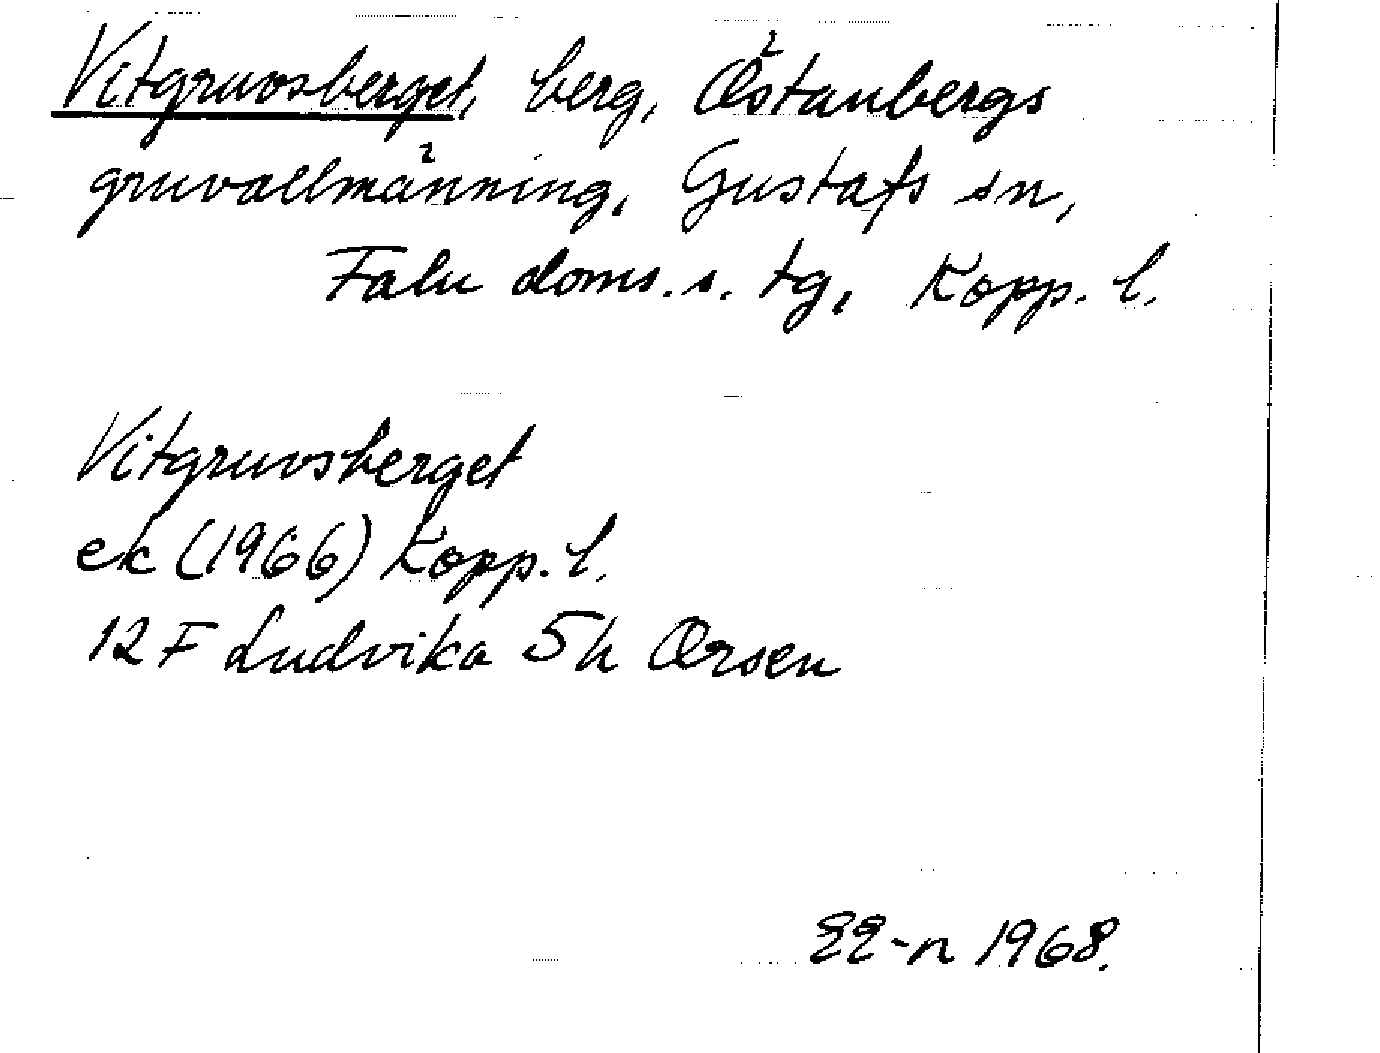 Vitgruvsberget, berg, Östanbergs
gruvallmänning, Gustafs sn,
Falu doms. s. tg, Kopp. l.
Vitgruvsberget
ek (1966) Kopp. l.
12 F Ludvika 5h Orsen
EE-n 1968.